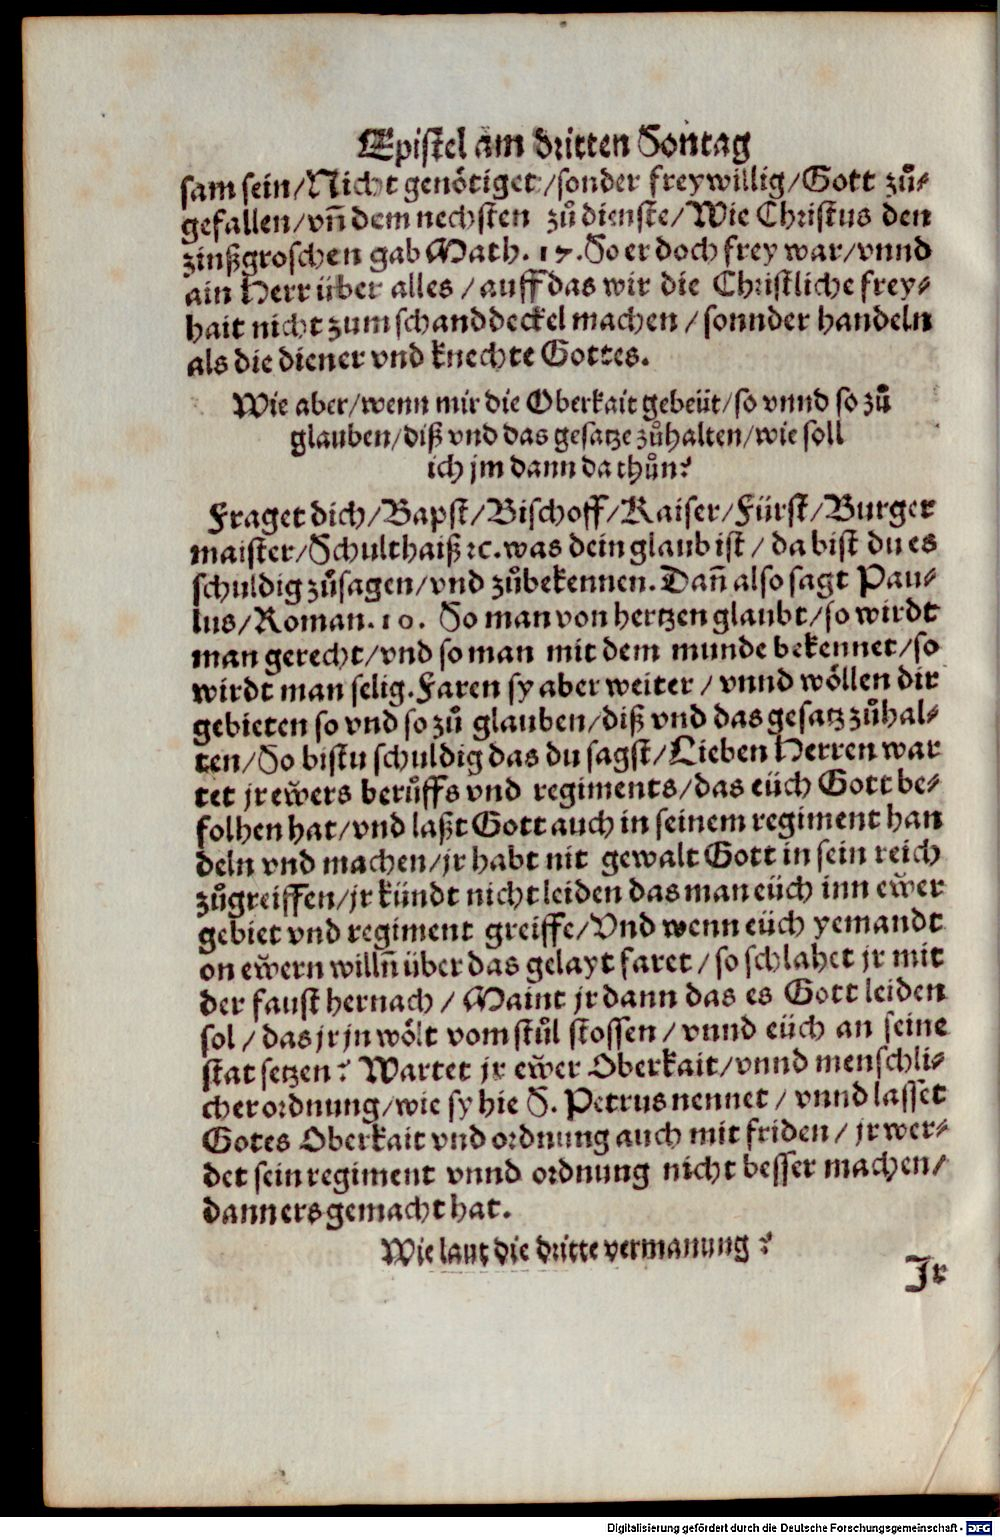 Epistel am dritten Sontag
sam sein/Nicht genötiget/sonder freywillig/Gott zů-
gefallen/vñ dem nechsten zů dienste/Wie Christus den
zinßgroschen gab Math. 17. So er doch frey war/vnnd
ain Herr über alles/auff das wir die Christliche frey-
hait nicht zum schanddeckel machen/sonnder handeln
als die diener vnd knechte Gottes.
Wie aber/wenn mir die Oberkait gebeüt/so vnnd so zů
glauben/diß vnd das gesatze zůhalten/wie soll
ich jm dann da thůn?
Fraget dich/Bapst/Bischoff/Kaiser/Fürst/Burger
maister/Schulthaiß ꝛc. was dein glaub ist/da bist du es
schuldig zůsagen/vnd zůbekennen. Dañ also sagt Pau-
lus/Roman. 10. So man von hertzen glaubt/so wirdt
man gerecht/vnd so man mit dem munde bekennet/so
wirdt man selig. Faren sy aber weiter/vnnd wöllen dir
gebieten so vnd so zů glauben/diß vnd das gesatz zůhal-
ten/So bistu schuldig das du sagst/Lieben Herren war
tet jr ewers berůffs vnd regiments/das eüch Gott be-
folhen hat/vnd laßt Gott auch in seinem regiment han
deln vnd machen/jr habt nit gewalt Gott in sein reich
zůgreiffen/jr kündt nicht leiden das man eüch inn ewer
gebiet vnd regiment greiffe/Vnd wenn eüch yemandt
on ewern willñ über das gelayt faret/so schlahet jr mit
der faust hernach/Maint jr dann das es Gott leiden
sol/das jr jn wölt vom stůl stossen/vnnd eüch an seine
stat setzen? Wartet jr ewer Oberkait/vnnd menschli-
cher ordnung/wie sy hie S. Petrus nennet/vnnd lasset
Gotes Oberkait vnd ordnung auch mit friden/jr wer-
det sein regiment vnnd ordnung nicht besser machen/
dann ers gemacht hat.
Wie laut die dritte vermanung?
Jr
Digitalisierung gefördert durch die Deutsche Forschungsgemeinschaft - DFG